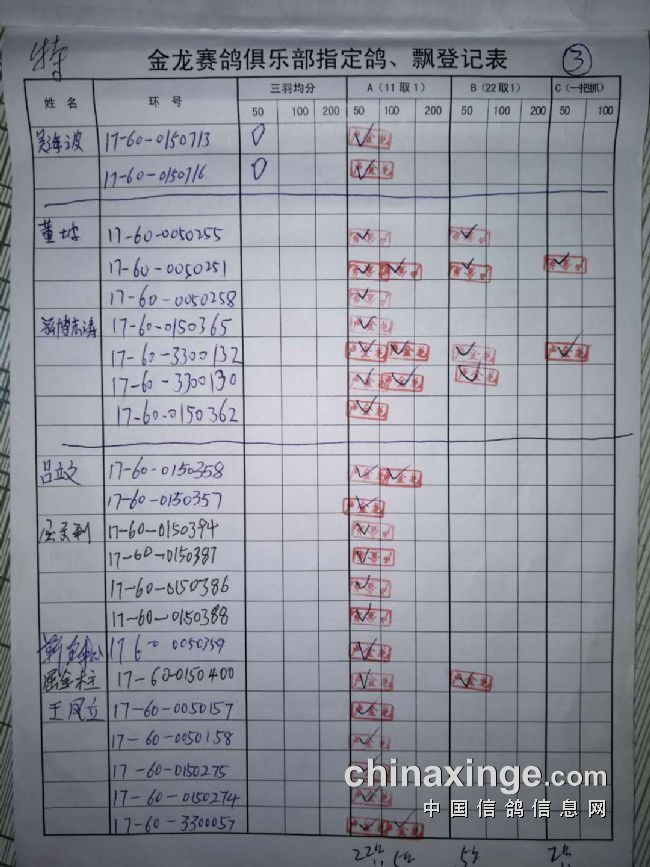 特
金龙赛鸽俱乐部指定鸽、飘登记表 ③
姓 名 环 号 三羽均分 A(11取1) B(22取1) C(一把抓)
50 100 200 50 100 200 50 100 200 50 100
17-60-0150713
17-60-0150716
董坡 17-60-0050255
17-60-0050251
17-60-0050258
淄博志涛 17-60-0150365
17-60-3300132
17-60-3300130
17-60-0150362
吕立文 17-60-0150358
17-60-0150357
17-60-0150394
17-60-0150387
17-60-0150386
17-60-0150388
17 60 0050359
屈金柱 17-60-0150400
王凤立 17-60-0050157
17-60-0050158
17-60-0150275
17-60-0150274
17-60-3300057
chinaxinge.com
中国信鸽信息网